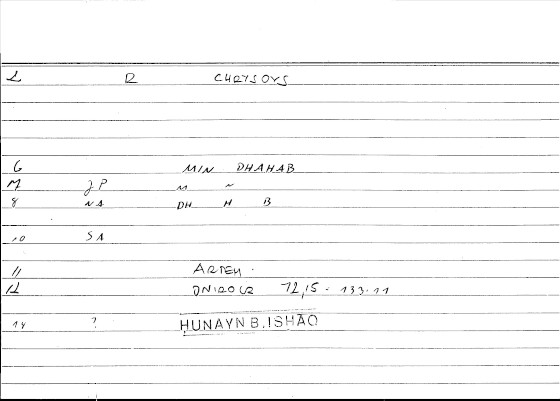 L R CHRYSOVS
6 MIN DHAHAB
M JP M N
8 NA DH H B
10 SA
11 ARTEM.
12 ONIROCR 72,15 - 133.11
14 ? HUNAYN B. ISHAQ